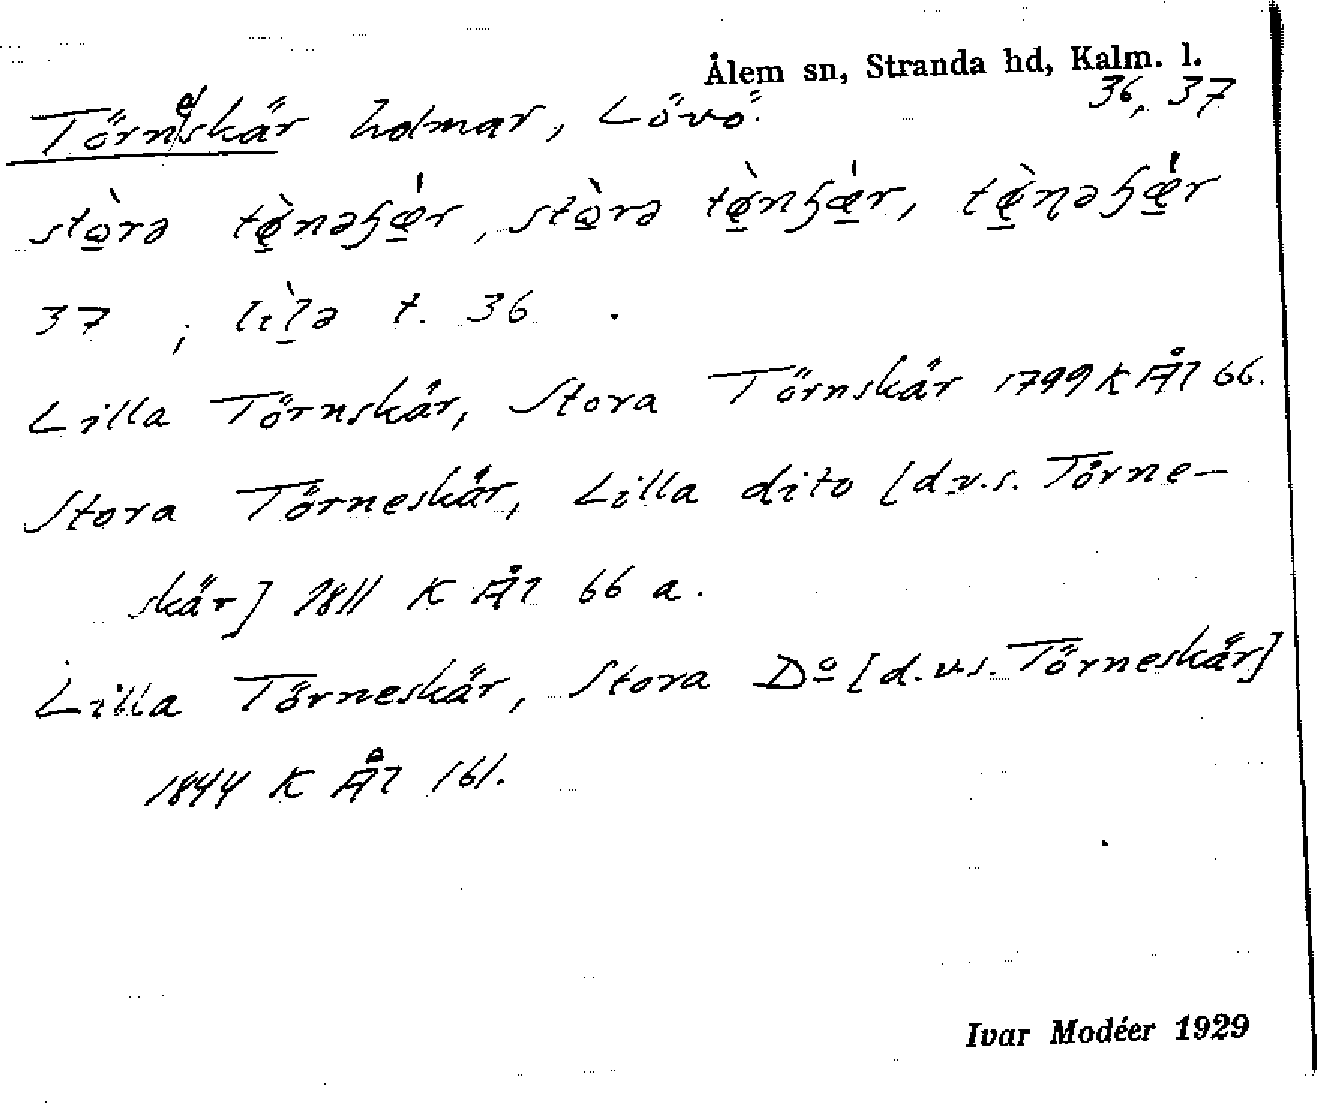 Ålem sn, Stranda hd, Kalm. l.
36, 37
Törneskär holmar, Lövö.
stò̱rə tø̱̀nəʃǽ̱r, stò̱rə tø̱̀nʃǽ̱r, tø̱̀ɳəʃǽ̱r
37 ; lìl̠ə t. 36 .
Lilla Törnskär, Stora Törnskär 1799 K Ål 66.
Stora Törneskär, Lilla dito [d.v.s. Törne-
skär] 1811 K Ål 66 a.
Lilla Törneskär, Stora Dº [d.v.s. Törneskär]
1844 K Ål 161.
Ivar Modéer 1929